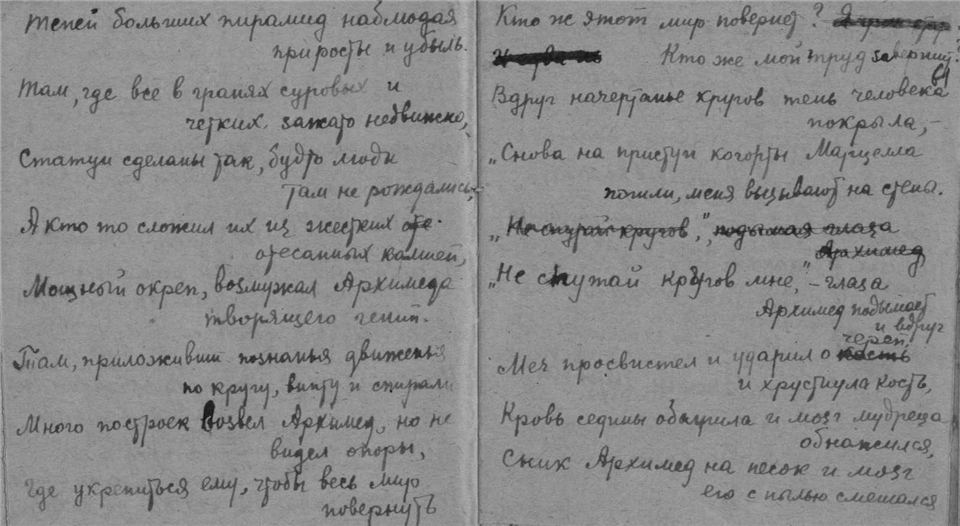 Теней больших пирамид наблюдая
приросты и убыль.
Там, где всё в гранях суровых и
четких зажато недвижно,
Статуи сделаны так, будто люди
там не рождались,
А кто то сложил их из жестких оте-
отесанных камней,
Мощный окреп, возмужал Архимеда
творящего гений.
Там, приложивши познанья движенья
по кругу, винту и спирали
Много построек возвел Архимед, но не
видел опоры,
Где укрепиться ему, чтобы весь мир
повернуть
Кто ж этот мир повернет?
Кто же мой труд завершит?
Вдруг начертанье кругов тень человека
покрыла,-
„Снова на приступ когорты Марцелла
пошли, меня вызывают на стены.
„Не спутай кругов", подымая глаза
Архимед
„Не спутай кругов мне," – глаза
Архимед подымает
и вдруг
череп
Меч просвистел и ударил о кость
и хрустнула кость,
Кровь седины обагрила и мозг мудреца
обнажился,
Сник Архимед на песок и мозг
его с пылью смешался